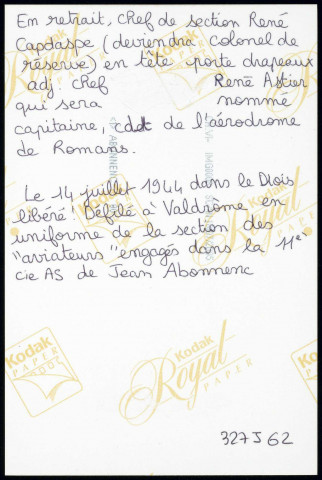 En retrait, chef de section René
Capdaspe (deviendra colonel de
réserve) en tête porte drapeaux
adj. chef René Astier
qui sera nommé
capitaine, cdt de l'aérodrome
de Romans.
Le 14 juillet 1944 dans le Diois
libéré! Défilé à Valdrôme en
uniforme de la section des
"aviateurs" engagés dans la 11e
cie AS de Jean Abonnenc
Kodak
PAPER
Kodak
Royal
PAPER
327 J 62